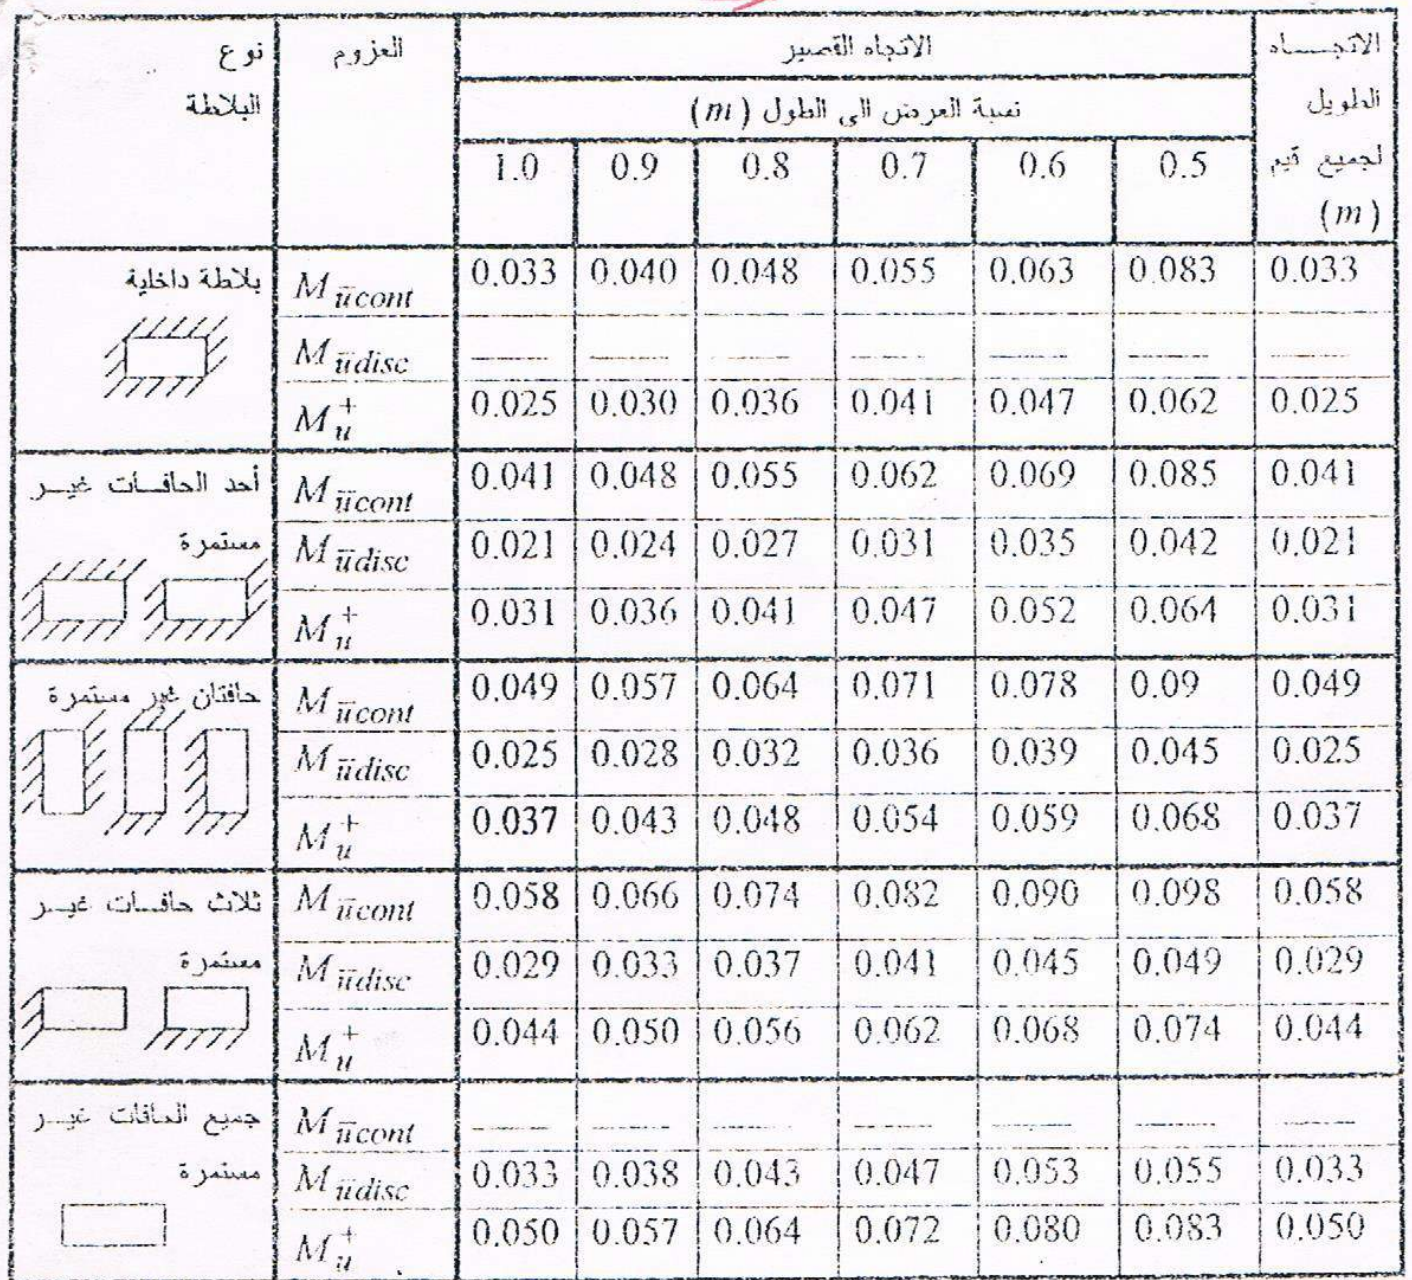 نوع البلاطة | العزوم | الاتجاه القصير | الاتجــــاه الطويل لجميع قيم (m)
نسبة العرض الى الطول (m)
1.0 | 0.9 | 0.8 | 0.7 | 0.6 | 0.5
بلاطة داخلية
M ūcont | 0.033 | 0.040 | 0.048 | 0.055 | 0.063 | 0.083 | 0.033
M ūdisc | — | — | — | — | — | — | —
M u+ | 0.025 | 0.030 | 0.036 | 0.041 | 0.047 | 0.062 | 0.025
أحد الحافـــات غيـــر مستمرة
M ūcont | 0.041 | 0.048 | 0.055 | 0.062 | 0.069 | 0.085 | 0.041
M ūdisc | 0.021 | 0.024 | 0.027 | 0.031 | 0.035 | 0.042 | 0.021
M u+ | 0.031 | 0.036 | 0.041 | 0.047 | 0.052 | 0.064 | 0.031
حافتان غير مستمرة
M ūcont | 0.049 | 0.057 | 0.064 | 0.071 | 0.078 | 0.09 | 0.049
M ūdisc | 0.025 | 0.028 | 0.032 | 0.036 | 0.039 | 0.045 | 0.025
M u+ | 0.037 | 0.043 | 0.048 | 0.054 | 0.059 | 0.068 | 0.037
ثلاث حافـــات غيـــر مستمرة
M ūcont | 0.058 | 0.066 | 0.074 | 0.082 | 0.090 | 0.098 | 0.058
M ūdisc | 0.029 | 0.033 | 0.037 | 0.041 | 0.045 | 0.049 | 0.029
M u+ | 0.044 | 0.050 | 0.056 | 0.062 | 0.068 | 0.074 | 0.044
جميع الحافات غيـــر مستمرة
M ūcont | — | — | — | — | — | — | —
M ūdisc | 0.033 | 0.038 | 0.043 | 0.047 | 0.053 | 0.055 | 0.033
M u+ | 0.050 | 0.057 | 0.064 | 0.072 | 0.080 | 0.083 | 0.050